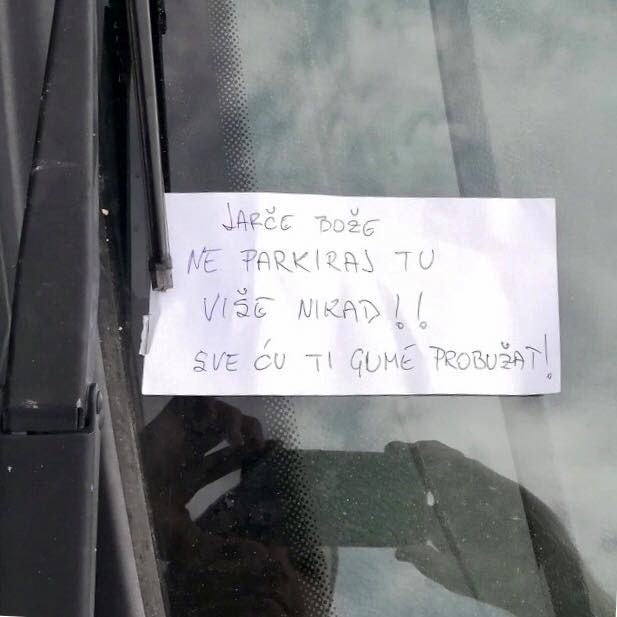 JARČE BOŽE
NE PARKIRAJ TU
VIŠE NIKAD!!
SVE ĆU TI GUME PROBUŽAT!